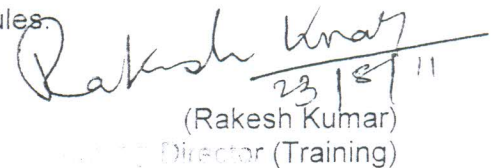 ules.
Rakesh Kumar
23/8/11
(Rakesh Kumar)
Director (Training)